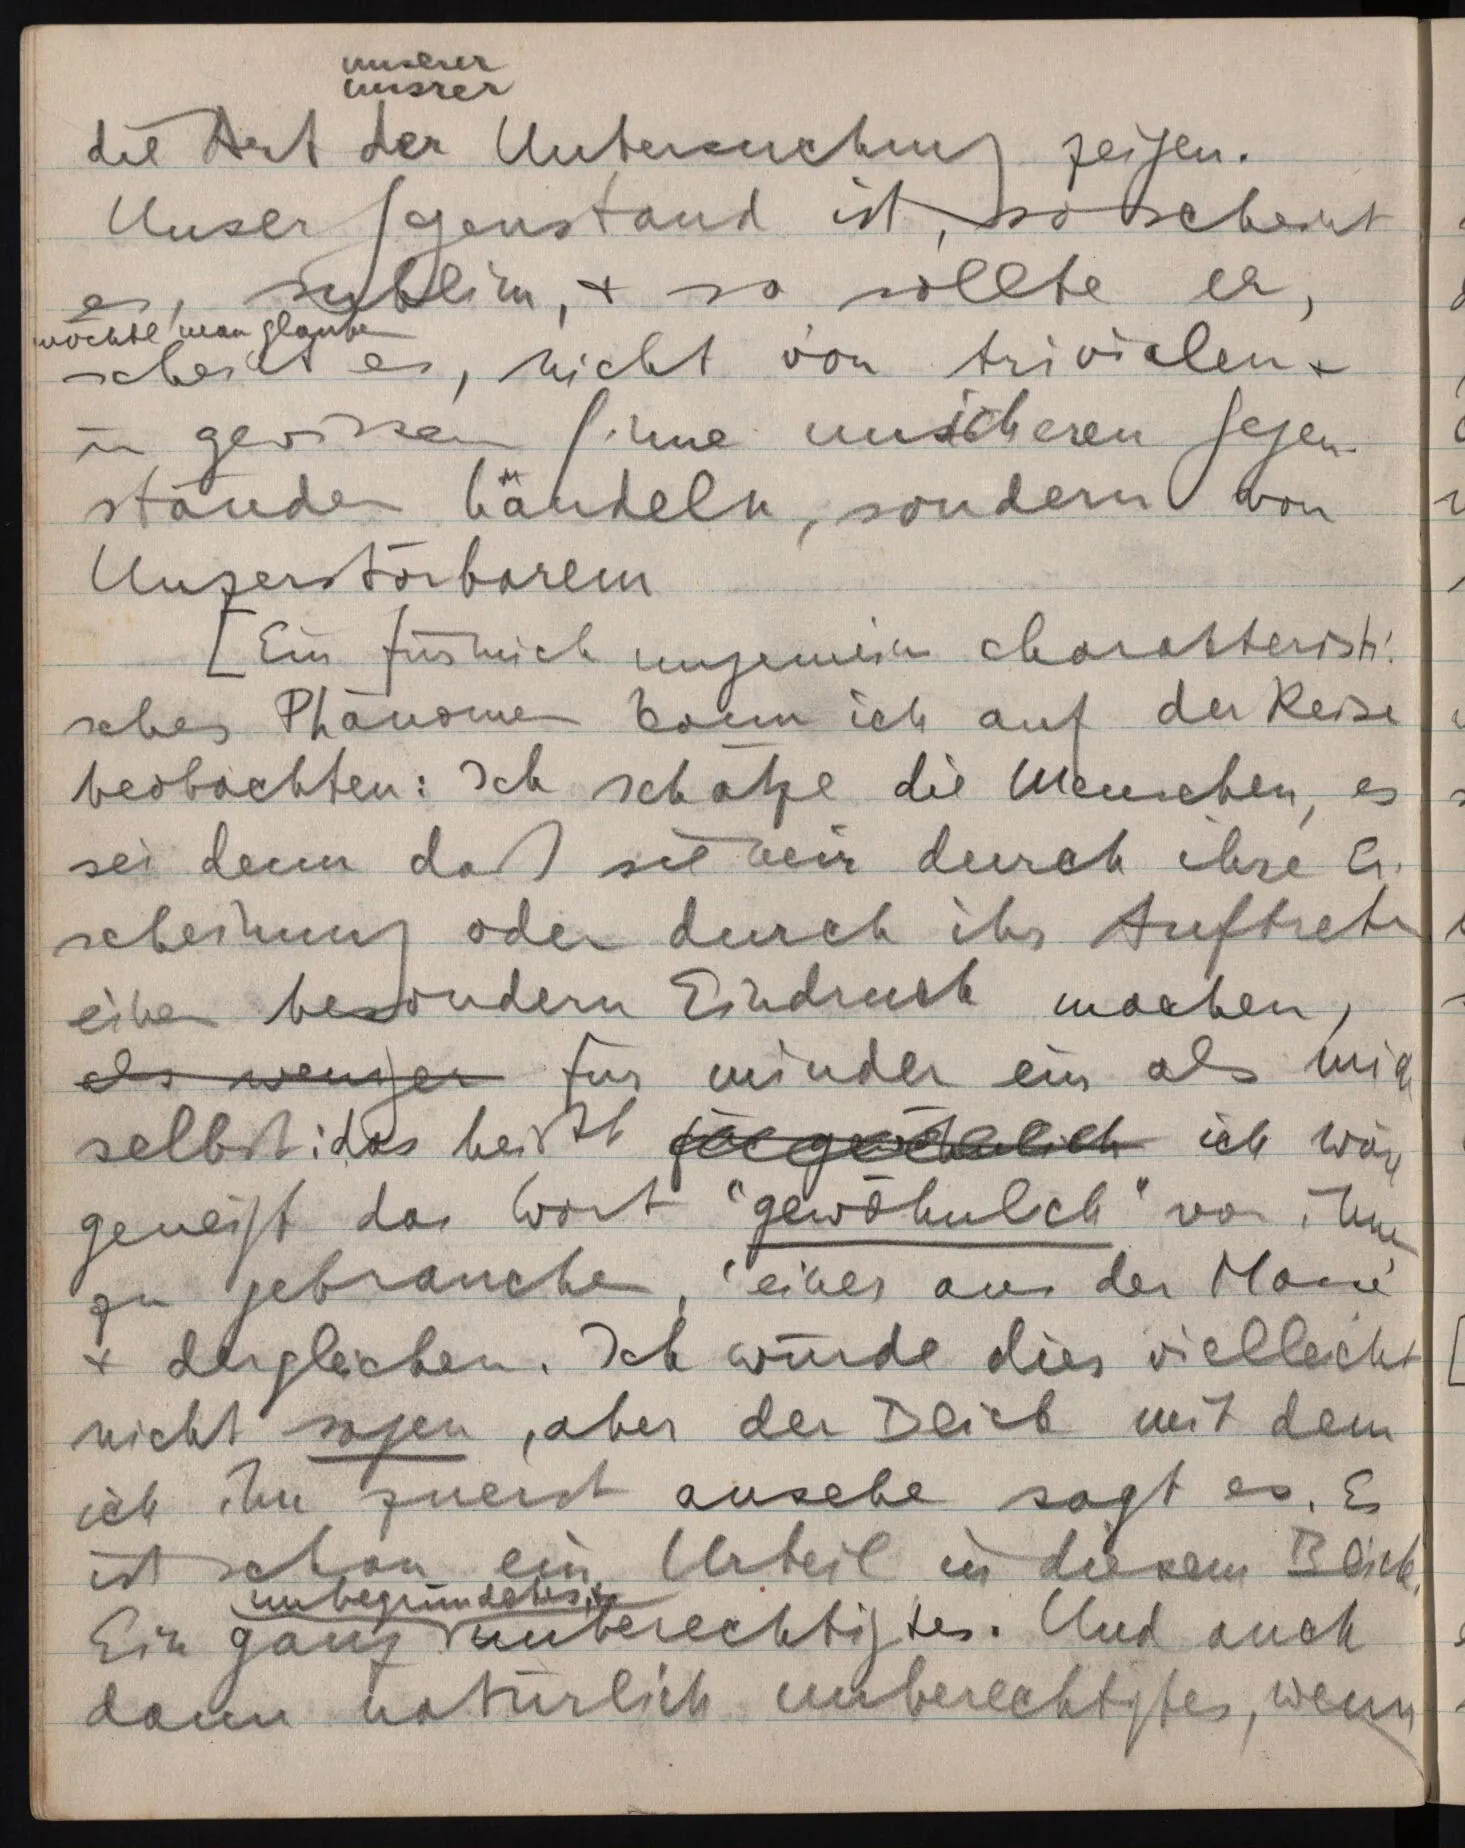 unserer
unsrer
die Art der Untersuchung zeigen.
Unser Gegenstand ist, so scheint
es, sublim, + so sollte er,
möchte man glauben
scheint es, nicht von trivialen +
in gewissem Sinne unsicheren Gegen-
ständen händeln, sondern von
Unzerstörbarem
[Ein für mich ungemein charakteristi-
sches Phänomen kann ich auf der Reise
beobachten: Ich schätze die Menschen, es
sei denn daß sie mir durch ihre Er-
scheinung oder durch ihr Auftreten
einen besondern Eindruck machen,
als weniger für minder ein als mich
selbst: das heißt für gewöhnlich ich wäre
geneigt das Wort "gewöhnlich" von ihnen
zu gebrauchen, 'einer aus der Masse'
+ dergleichen. Ich würde dies vielleicht
nicht sagen, aber der Blick mit dem
ich ihn zuerst ansehe sagt es. Es
ist schon ein Urteil in diesem Blick.
unbegründetes +
Ein ganz unberechtigtes. Und auch
dann natürlich unberechtigtes, wenn